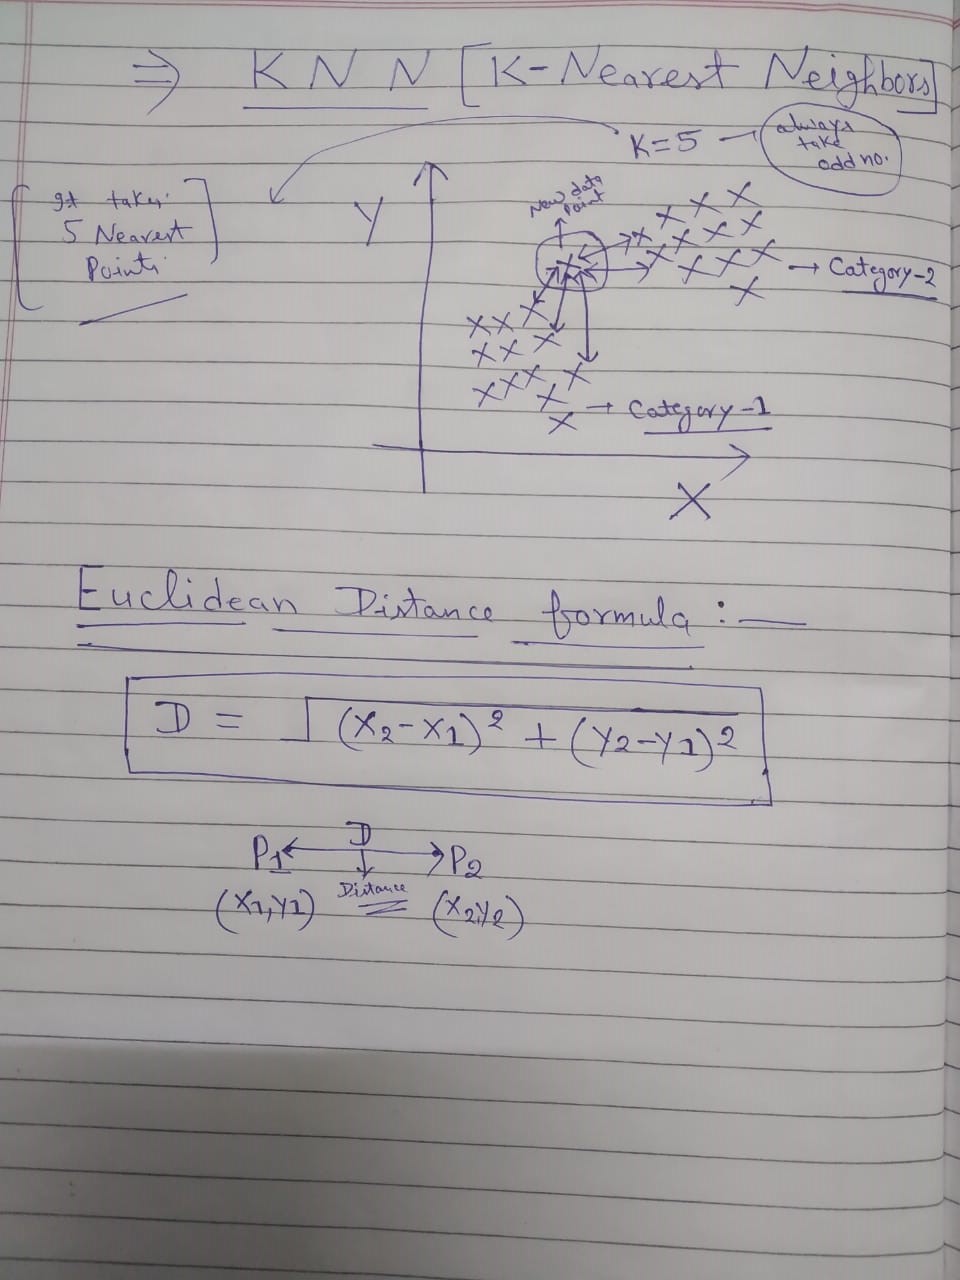 ⇒ K N N [K-Nearest Neighbors]
K=5 — always
take
odd no.
It takes
5 Nearest
Points
Y
New data
Point
→ Category-2
→ Category-1
X
Euclidean Distance formula :—
D = √(X2-X1)² + (Y2-Y1)²
D
P1 ←→ P2
Distance
(X1,Y1) (X2,Y2)